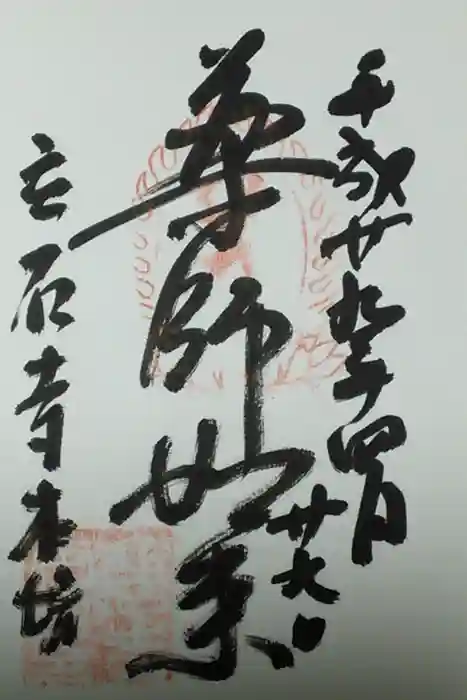 平成廿九年四月
廿九日
薬師如来
立石寺本坊